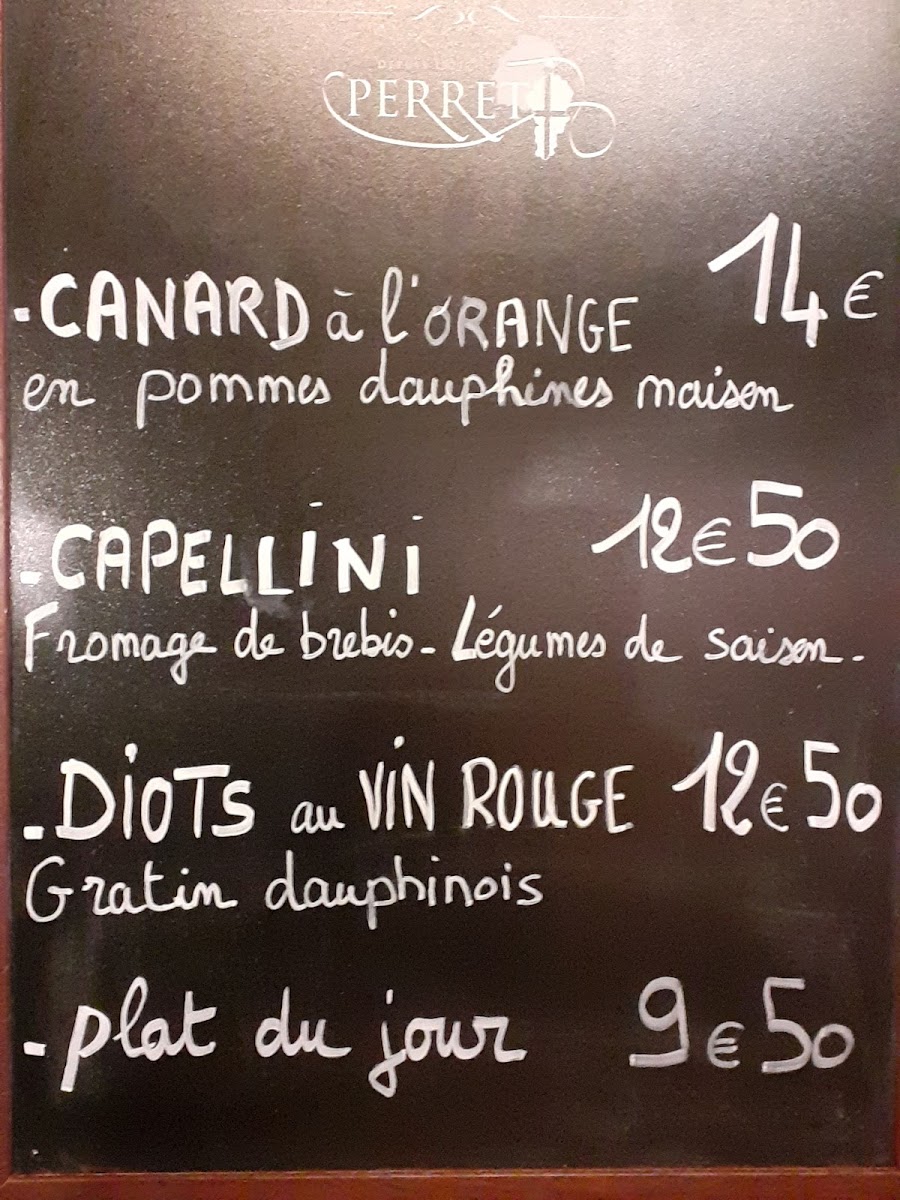 PERRET
-CANARD à l'ORANGE 14€
en pommes dauphines maison
-CAPELLINI 12€50
Fromage de brebis - Légumes de saison -
-DIOTS au VIN ROUGE 12€50
Gratin dauphinois
- plat du jour 9€50